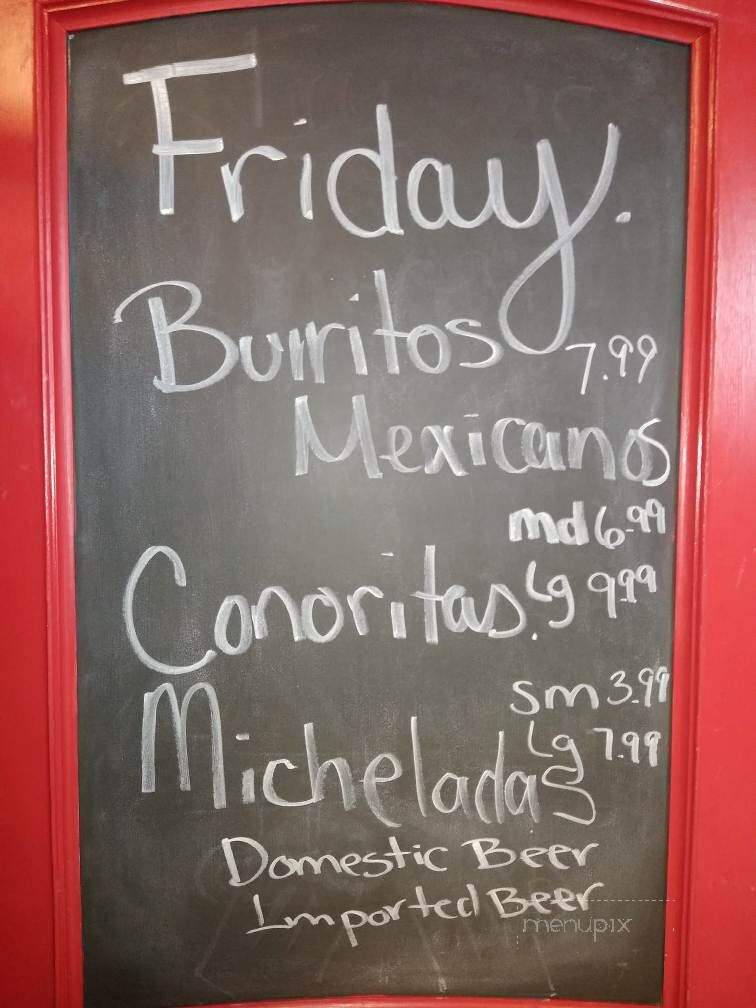 Friday.
Burritos 7.99
Mexicanos
md 6.99
Conoritas. Lg 9.99
sm 3.99
Lg 7.99
Micheladas
Domestic Beer
Imported Beer
menupix